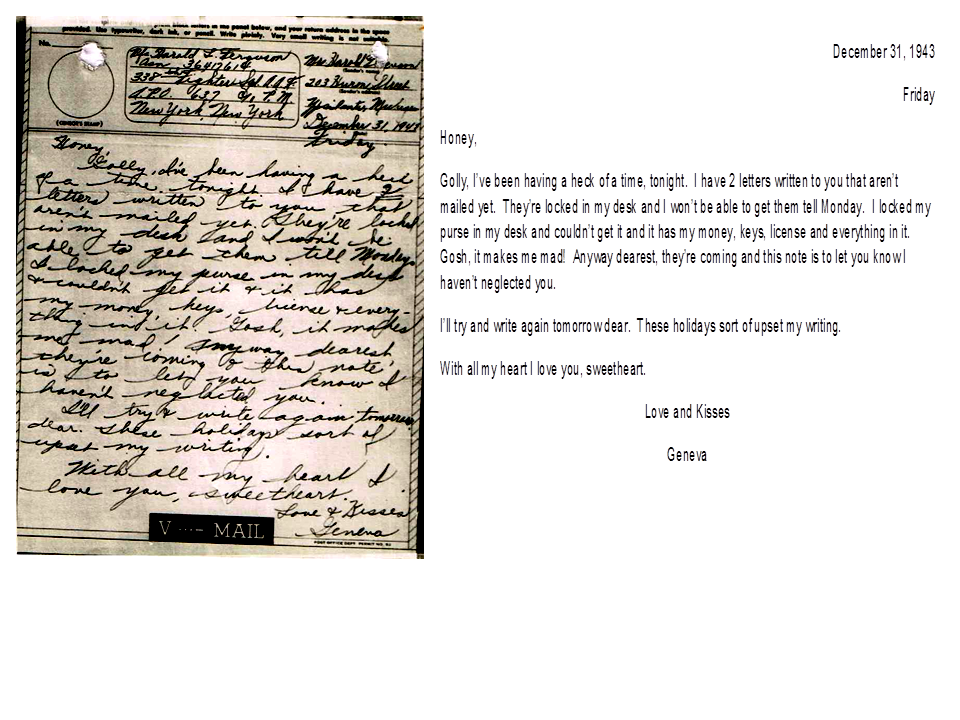 provided. Use typewriter, dark ink, or pencil. Write plainly. Very small writing is not suitable.
No.
(CENSOR'S STAMP)
Mr. Harold L. Ferguson
338 Fighter Sqd.
A.P.O. 637 P.M.
New York, New York
Mrs Harold
(Sender's name)
203 Huron Street
(Sender's address)
December 31, 1943
Friday
Honey,
Golly, I've been having a heck
of a time, tonight. I have 2
letters written to you that
aren't mailed yet. They're locked
in my desk and I won't be
able to get them till Monday.
I locked my purse in my desk
& couldn't get it & it has
my money, keys, license & every-
thing in it. Gosh, it makes
me mad! Anyway dearest
they're coming & this note
is to let you know I
haven't neglected you.
I'll try & write again tomorrow
dear. These holidays sort of
upset my writing.
With all my heart I
love you, sweetheart.
Love & Kisses
Geneva
V ···– MAIL
December 31, 1943
Friday
Honey,
Golly, I've been having a heck of a time, tonight. I have 2 letters written to you that aren't
mailed yet. They're locked in my desk and I won't be able to get them tell Monday. I locked my
purse in my desk and couldn't get it and it has my money, keys, license and everything in it.
Gosh, it makes me mad! Anyway dearest, they're coming and this note is to let you know I
haven't neglected you.
I'll try and write again tomorrow dear. These holidays sort of upset my writing.
With all my heart I love you, sweetheart.
Love and Kisses
Geneva